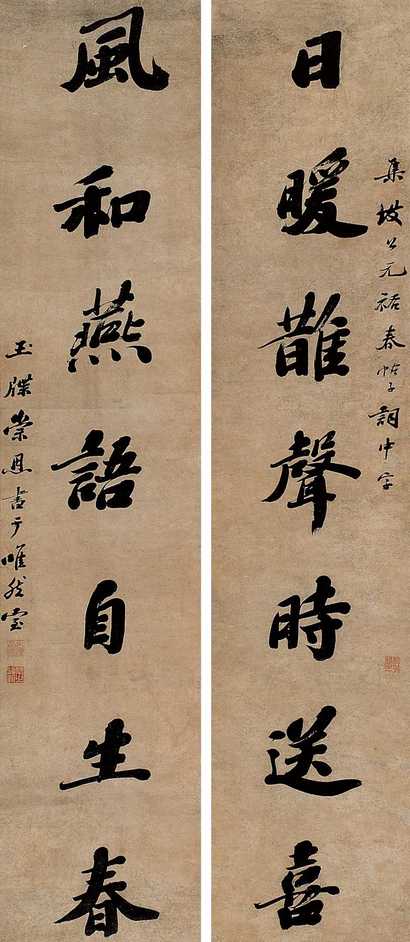 集坡公元祐春帖子詞中字
日暖鵲聲時送喜
風和燕語自生春
玉牒崇恩書于唯然室